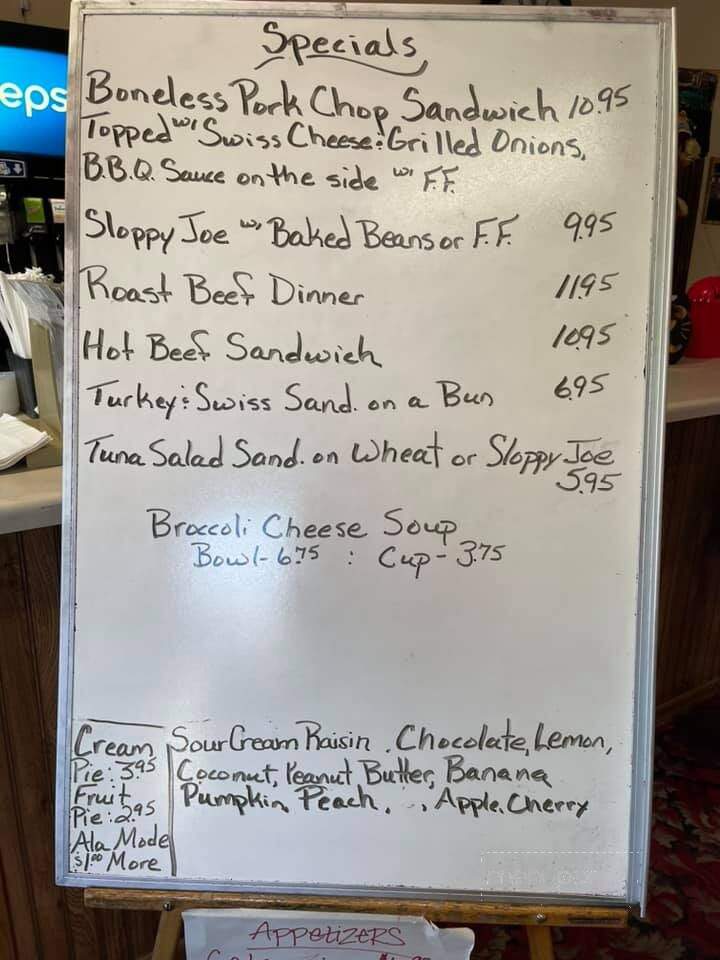 Specials
eps
Boneless Pork Chop Sandwich 10.95
Topped w/ Swiss Cheese & Grilled Onions,
B.B.Q. Sauce on the side w/ F.F.
Sloppy Joe w/ Baked Beans or F.F. 9.95
Roast Beef Dinner 11.95
Hot Beef Sandwich 10.95
Turkey & Swiss Sand. on a Bun 6.95
Tuna Salad Sand. on Wheat or Sloppy Joe
5.95
Broccoli Cheese Soup
Bowl- 6.75 : Cup- 3.75
Cream
Pie: 3.95
Fruit
Pie: 2.95
Ala Mode
$1.00 More
Sour Cream Raisin, Chocolate, Lemon,
Coconut, Peanut Butter, Banana
Pumpkin, Peach, ., Apple, Cherry
Appetizers